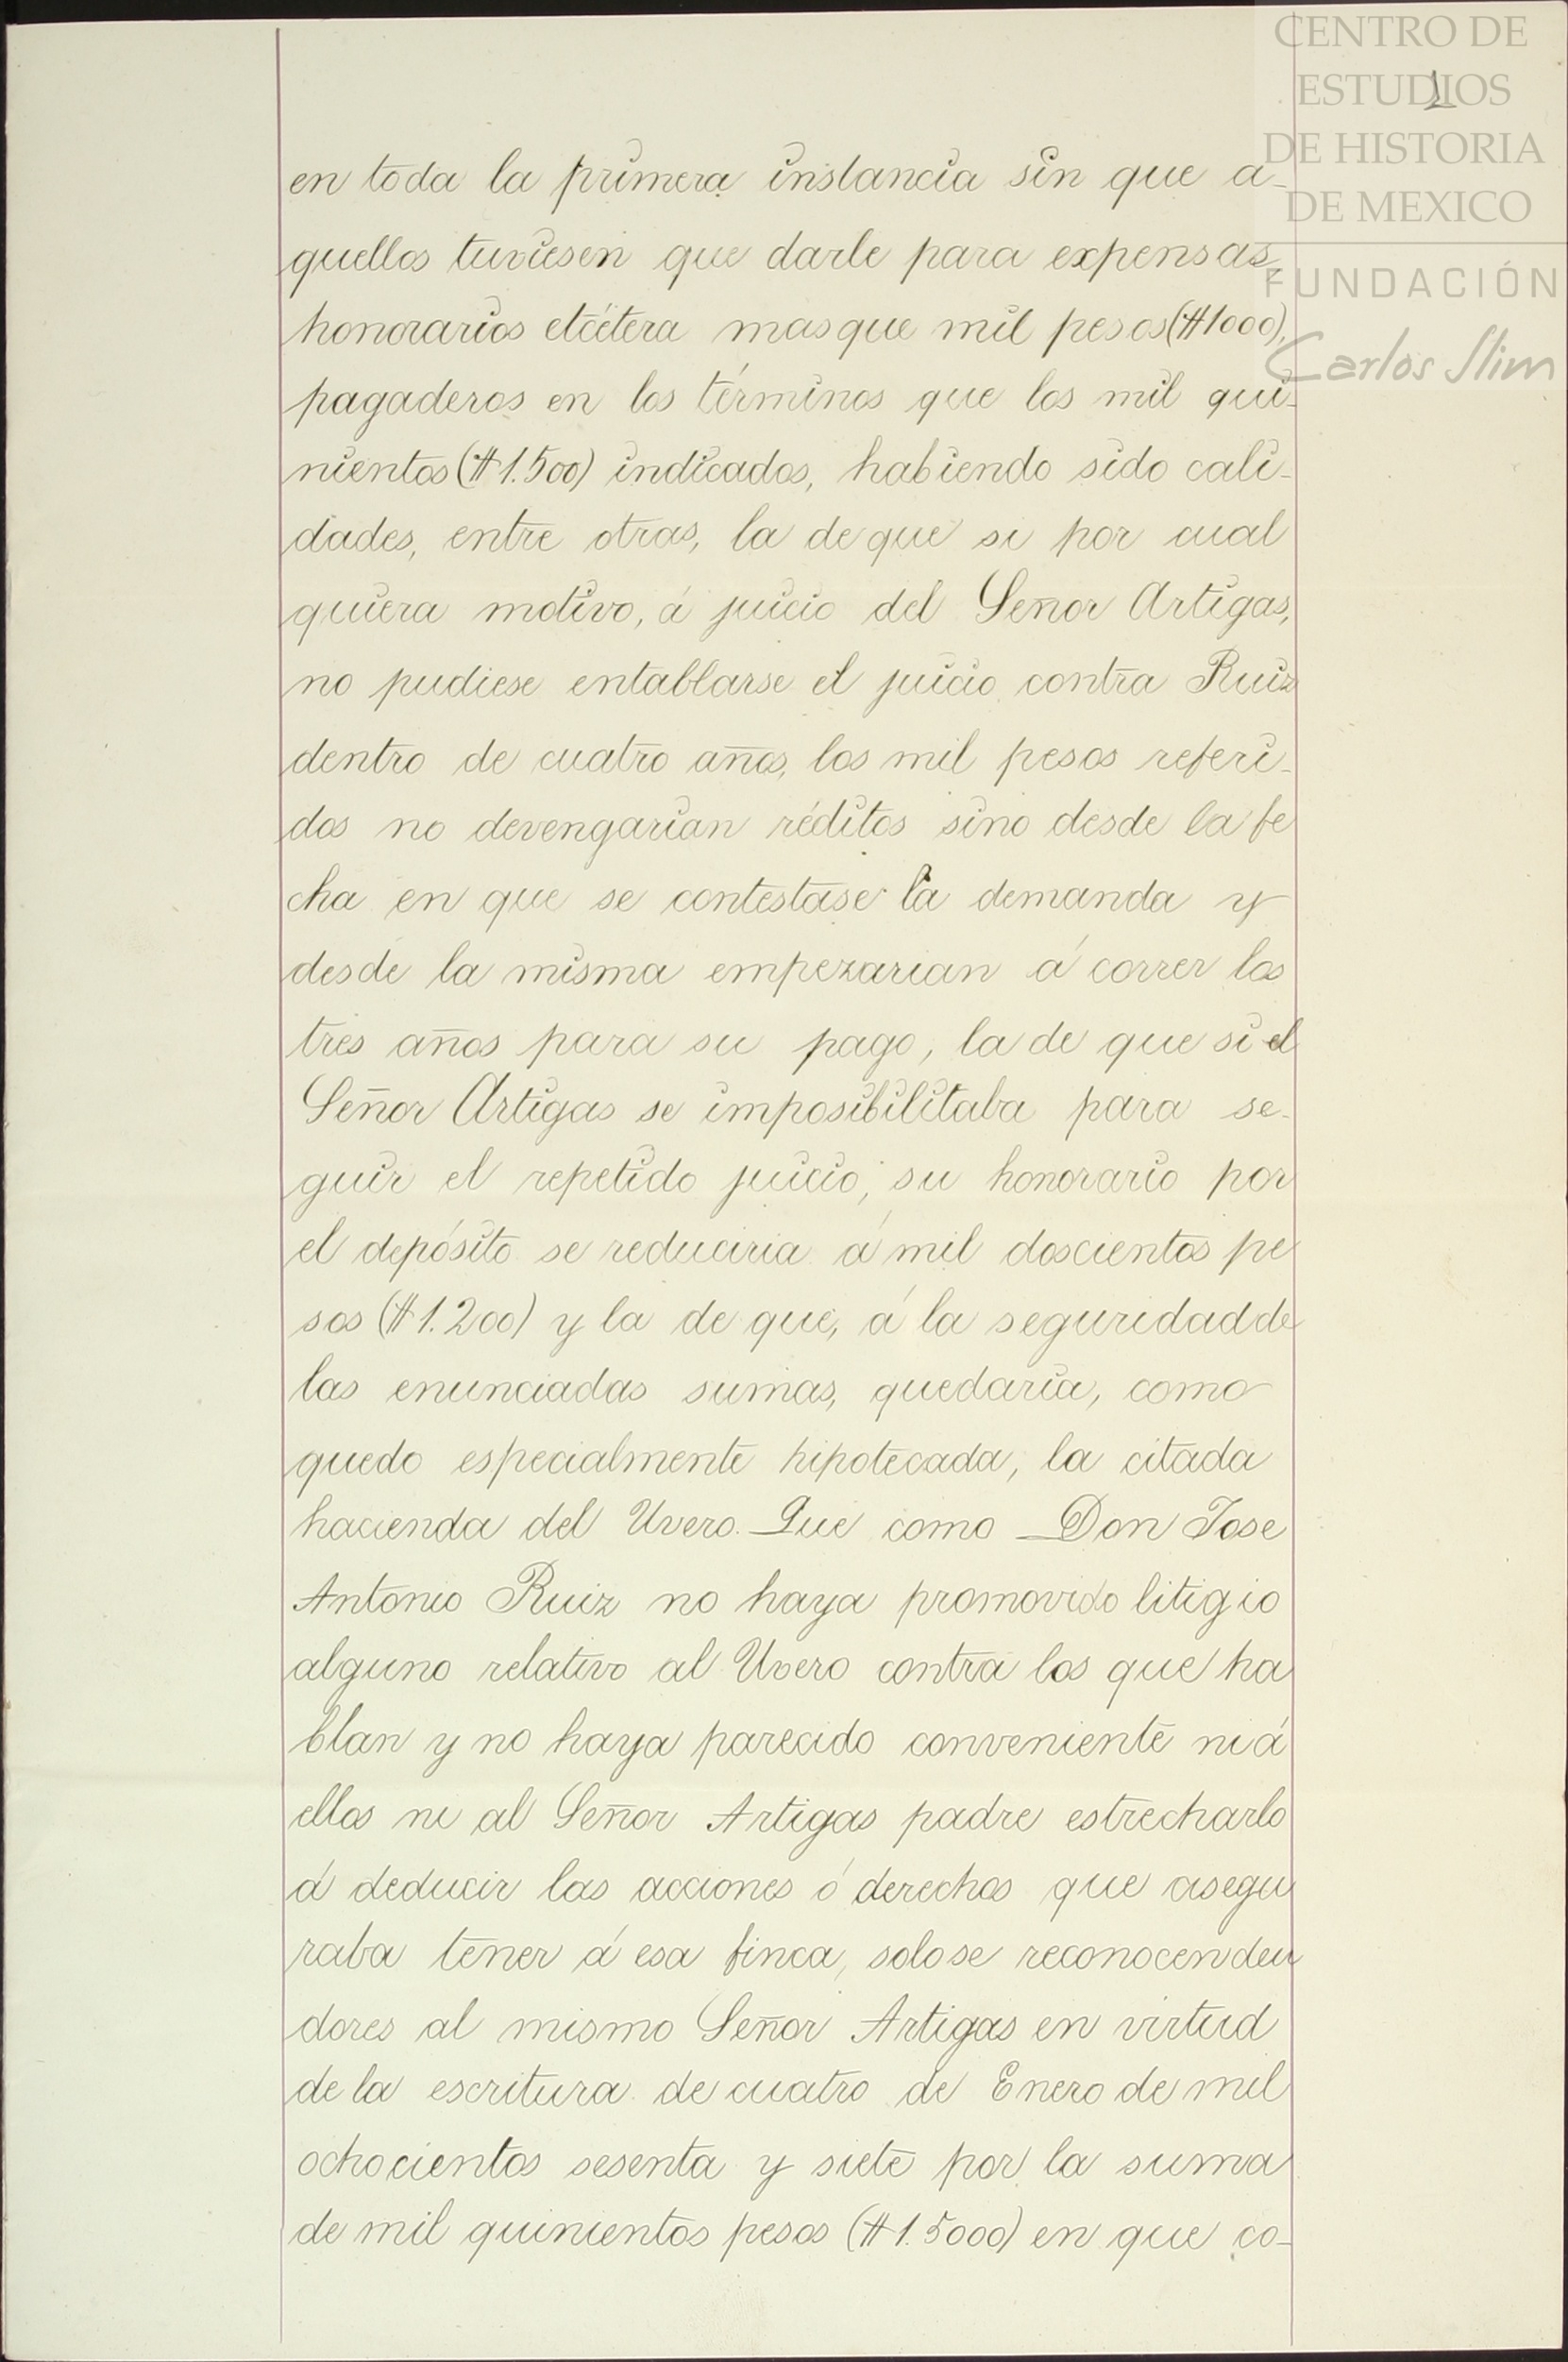 CENTRO DE
ESTUDIOS
DE HISTORIA
DE MEXICO
FUNDACIÓN
Carlos Slim
en toda la primera instancia sin que a-
quellos tuviesen que darle para expensas,
honorarios etcétera mas que mil pesos ($1000),
pagaderos en los términos que los mil qui-
nientos ($1.500) indicados, habiendo sido cali-
dades, entre otras, la de que si por cual
quiera motivo, á juicio del Señor Artigas,
no pudiese entablarse el juicio contra Ruiz
dentro de cuatro años, los mil pesos referi-
dos no devengarian réditos sino desde la fe
cha en que se contestase la demanda y
desde la misma empezarian á correr los
tres años para su pago, la de que si el
Señor Artigas se imposibilitaba para se-
guir el repetido juicio, su honorario por
el depósito se reduciria á mil doscientos pe
sos ($1.200) y la de que, á la seguridad de
las enunciadas sumas, quedaria, como
quedo especialmente hipotecada, la citada
hacienda del Uvero. Que como Don Jose
Antonio Ruiz no haya promovido litigio
alguno relativo al Uvero contra los que ha
blan y no haya parecido conveniente ni á
ellos ni al Señor Artigas padre estrecharlo
á deducir las acciones ó derechos que asegu
raba tener á esa finca, solo se reconocen deu
dores al mismo Señor Artigas en virtud
de la escritura de cuatro de Enero de mil
ochocientos sesenta y siete por la suma
de mil quinientos pesos ($1.5000) en que co-